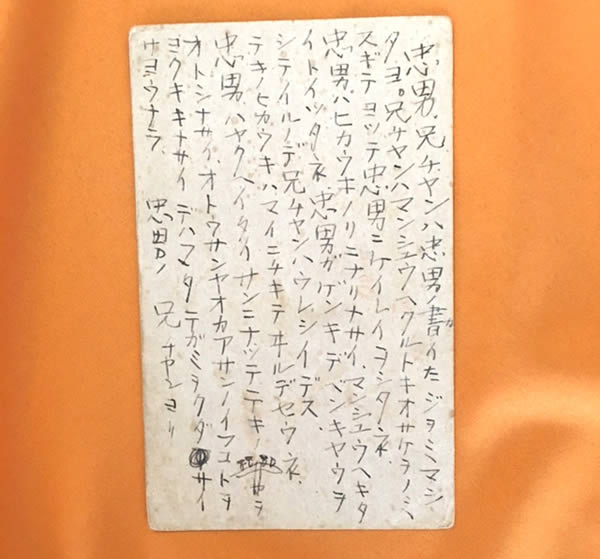 忠男、兄チャンハ忠男ノ書イタジヲミマシ
タヨ。兄チャンハマンシュウヘクルトキオサケヲノミ
スギテヨッテ忠男ニケイレイヲシタネ、
忠男ハヒカウキノリニナリナサイ、マンシュウヘキタ
イトイッタネ、忠男ガゲンキデベンキヤウヲ
シテイルノデ兄チャンハウレシイデス、
テキノヒカウキハマイニチキテヰルデセウネ、
忠男、ハヤクヘイタイサンニナッテテキノ
オトシナサイ、オトウサンヤオカアサンノイフコトヲ
ヨクキキナサイデハマタテガミヲクダサイ
サヨウナラ、
忠男ノ兄チャンヨリ